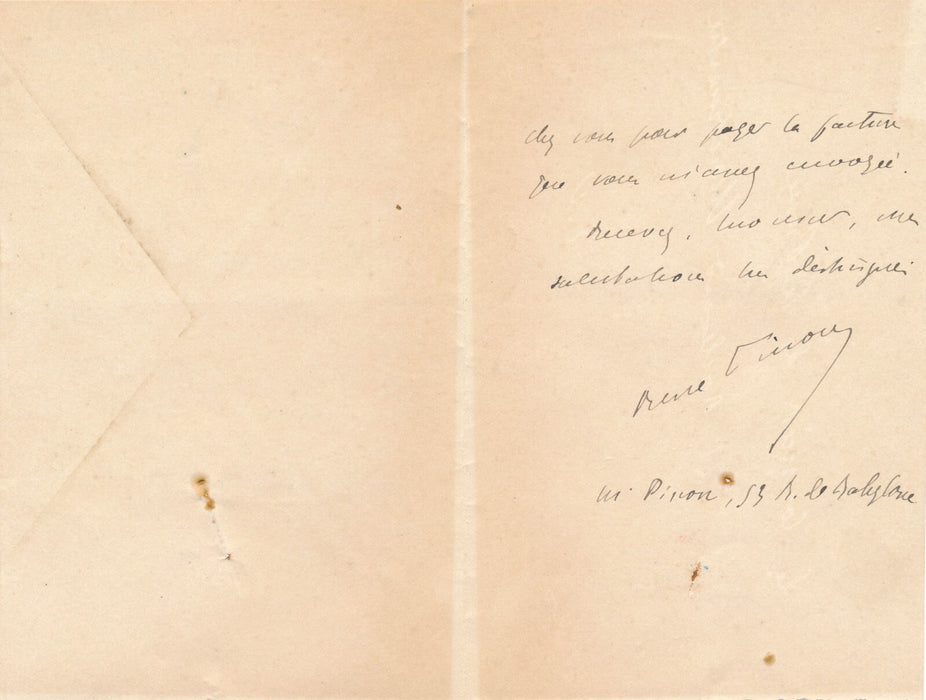 chez vous pour payer la facture
que vous m'avez envoyée.
Recevez, Monsieur, mes
salutations les distinguées
René Pinon
M. Pinon, 53 R. de Babylone